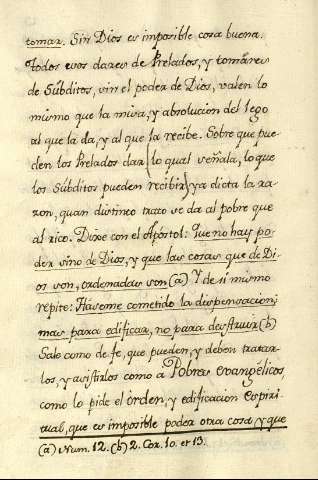 tomar. Sin Dios es imposible cosa buena.
Todos esos dares de Prelados, y tomares
de Súbditos, sin el poder de Dios, valen lo
mismo que la misa, y absolucion del lego
al que la da, y al que la recibe. Sobre que pue-
den los Prelados dar (lo qual señala, lo que
los Súbditos pueden recibir) ya dicta la ra-
zon, quan distinto trato se da al pobre que
al rico. Dixe con el Apóstol: Que no hay po-
der sino de Dios, y que las cosas que de Di-
os son, ordenadas son (a) Y de sí mismo
repite: Háseme cometido la dispensacion:
mas para edificar, no para destruir (b)
Salo como de fe, que pueden, y deben tratar-
los, y asistirlos como a Pobres evangélicos,
como lo pide el órden, y edificacion espiri-
tual, que es imposible poder otra cosa, y que
(a) Num. 12. (b) 2. Cor. 10. et 13.